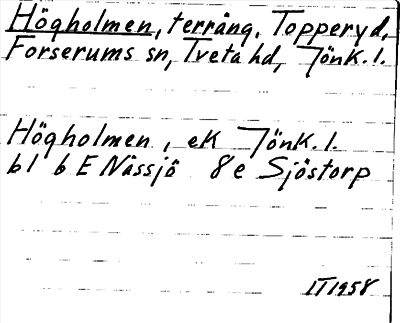 Högholmen, terräng, Topperyd,
Forserums sn, Tveta hd, Jönk. l.
Högholmen, ek Jönk. l.
bl 6 E Nässjö 8 e Sjöstorp
II 1958